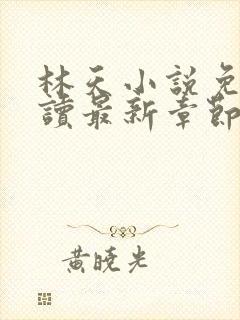 林天小說免
讀最新章節
黃曉光